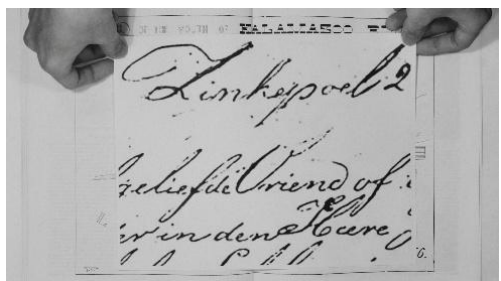 KALAMAZOO
Zinkepoel 2
geliefde Vriend of
er in den Heere